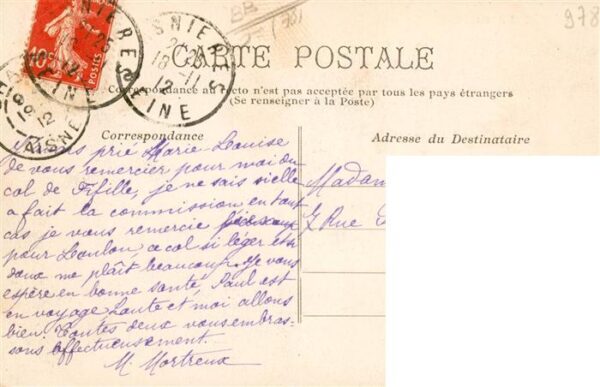 978
CARTE POSTALE
Correspondance au recto n'est pas acceptée par tous les pays étrangers
(Se renseigner à la Poste)
Correspondance
Adresse du Destinataire
prié Marie Louise
de vous remercier pour moi du
col de Fifille, je ne sais si elle
a fait la commission en tout
cas je vous remercie
pour Loulou, ce col si léger et si
doux me plaît beaucoup. Je vous
espère en bonne santé, Paul est
en voyage et moi allons
bien. Toutes deux vous embras-
sons affectueusement.
M. Mortreux
Madam
7 Rue
10
POSTES
AISNE